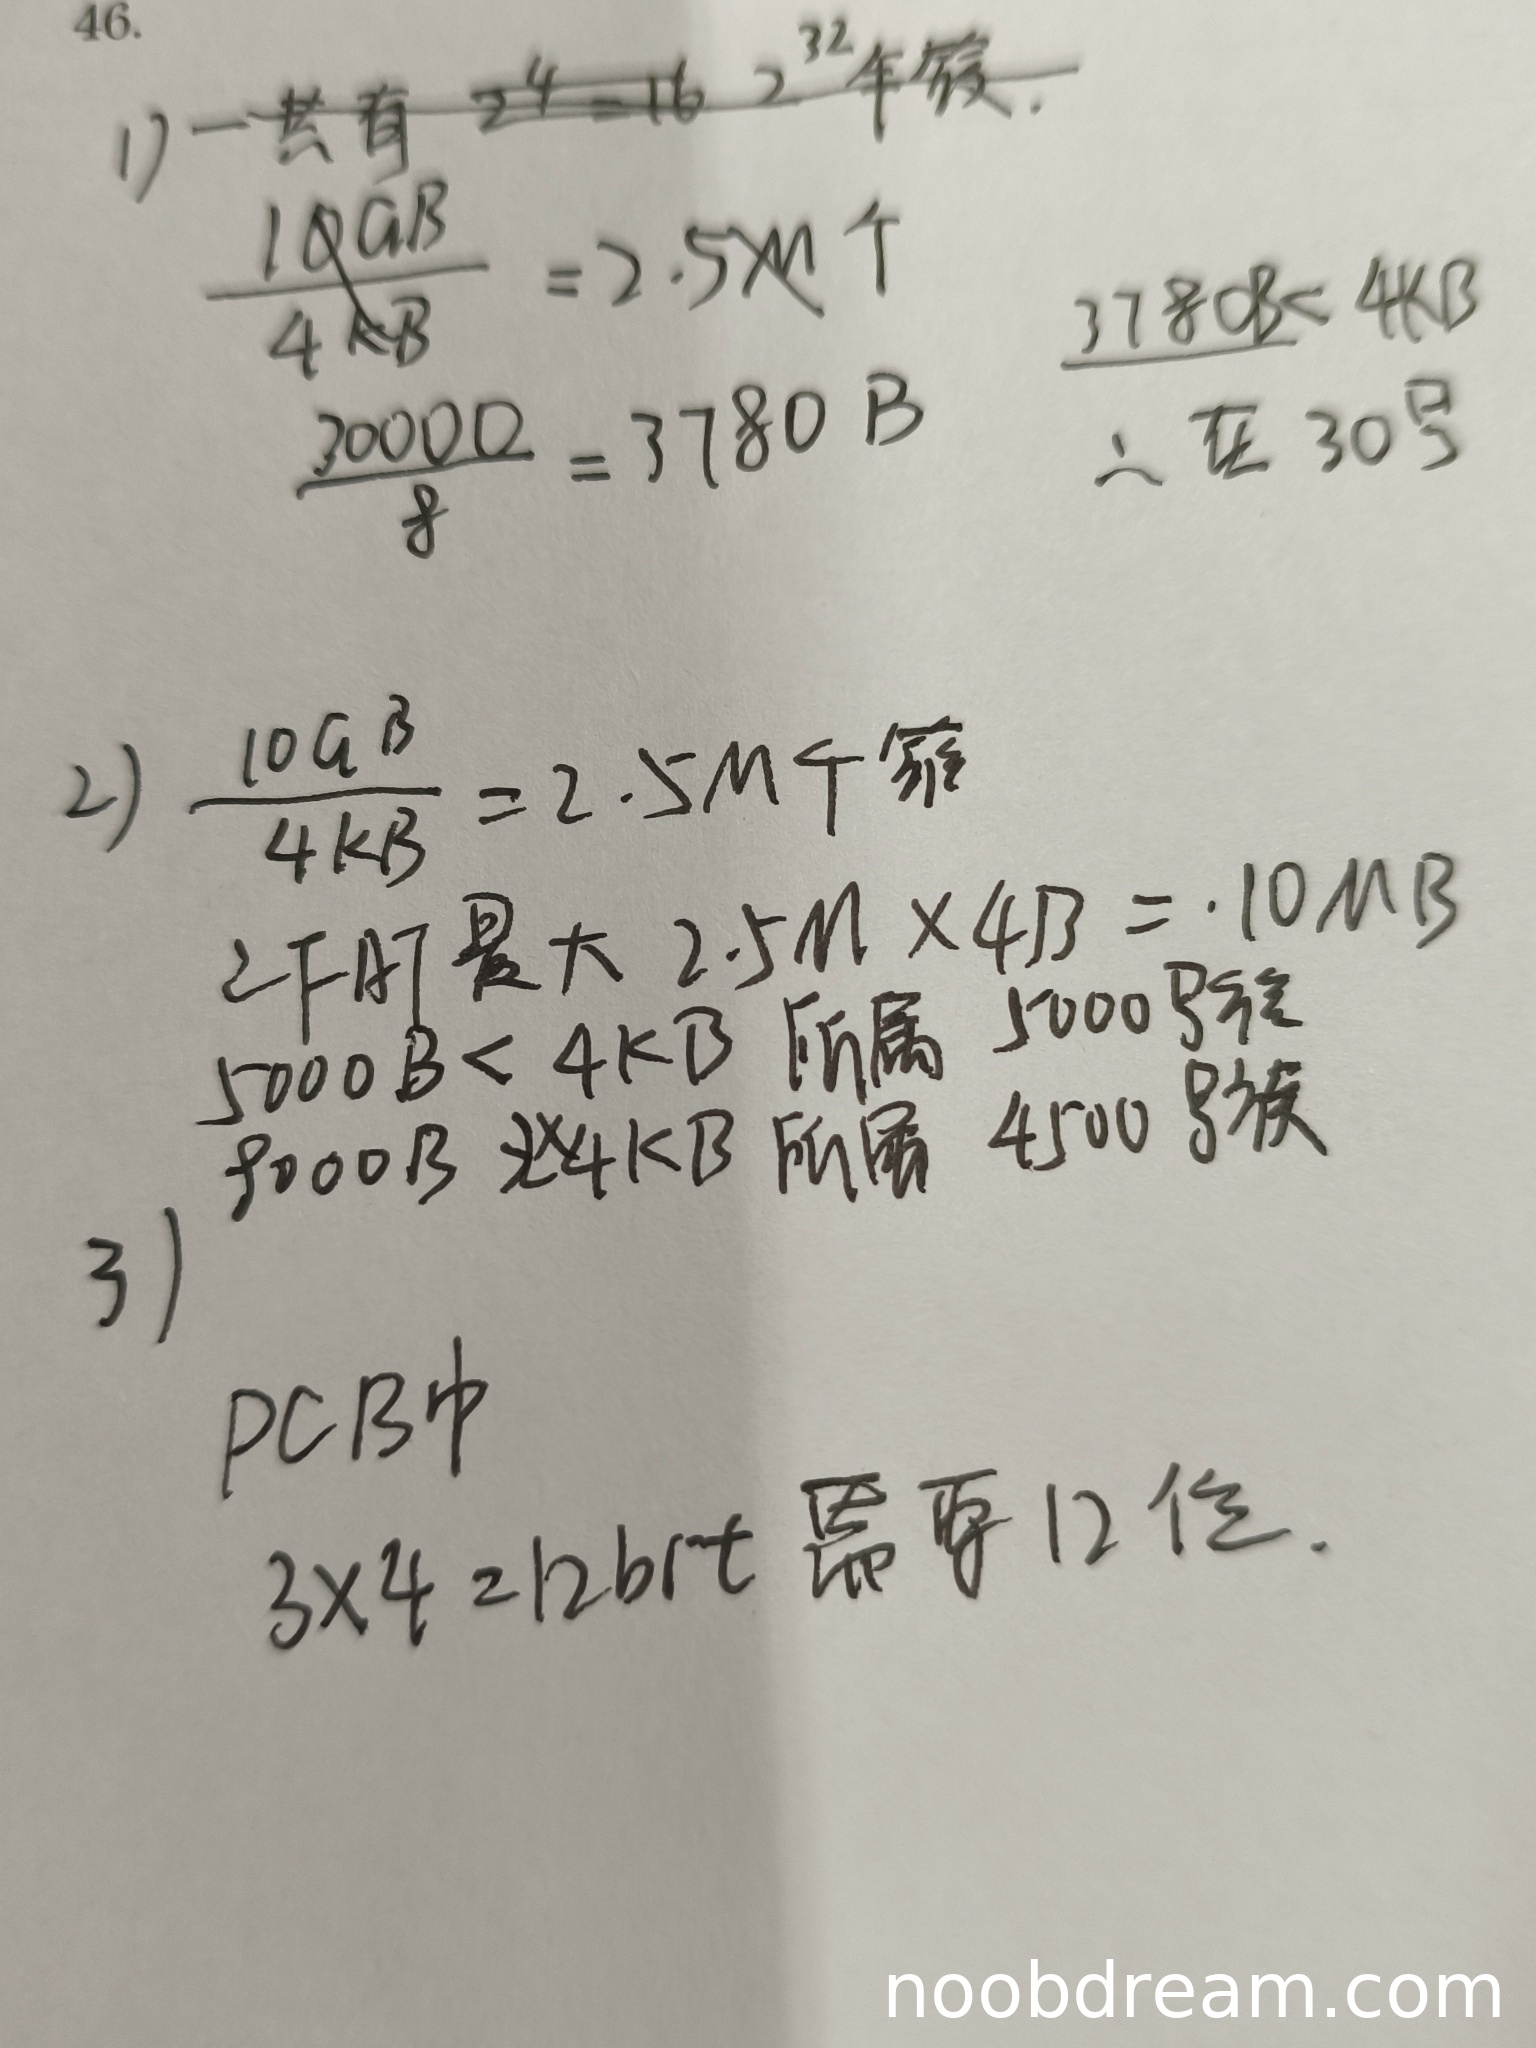 46.
1) 一共有 2^4=16 2^32个簇.
10GB/4KB = 2.5M个
30000/8 = 3780 B
3780B< 4KB
∴ 在 30号
2) 10GB/4KB = 2.5M个簇
∴FAT最大 2.5M×4B = 10MB
5000B< 4KB 所属 5000号簇
9000B 4KB 所属 4500号簇
3)
PCB中
3×4=12bit 需要12位.
noobdream.com